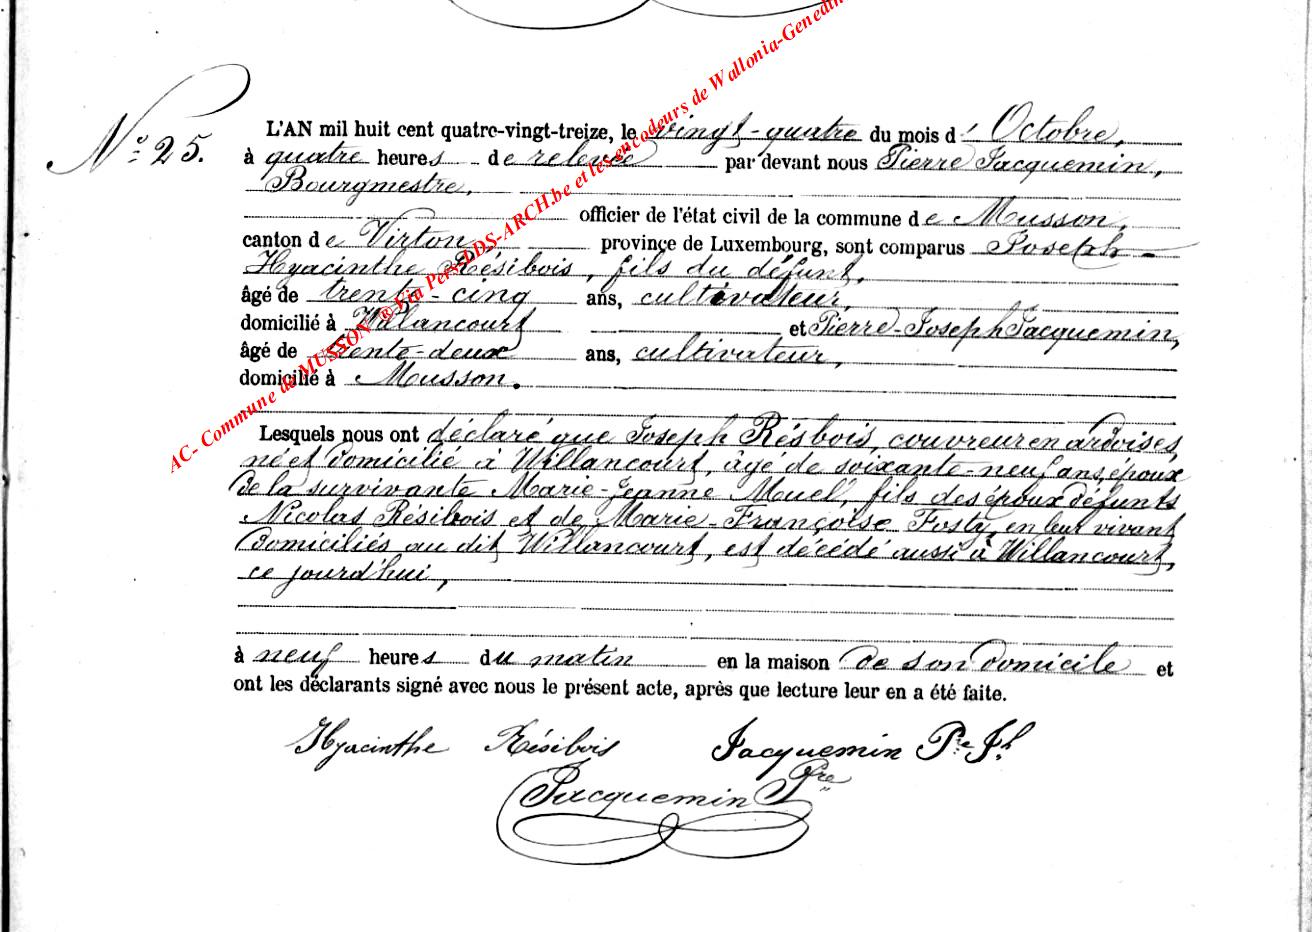 N° 25.
L'AN mil huit cent quatre-vingt-treize, le vingt-quatre du mois d' Octobre,
à quatre heures de relevée par devant nous Pierre Jacquemin,
Bourgmestre,
officier de l'état civil de la commune de Musson,
canton de Virton, province de Luxembourg, sont comparus Joseph-
Hyacinthe Résibois, fils du défunt,
âgé de trente-cinq ans, cultivateur,
domicilié à Willancourt et Pierre-Joseph Jacquemin,
âgé de trente-deux ans, cultivateur,
domicilié à Musson.
Lesquels nous ont déclaré que Joseph Résbois, couvreur en ardoises,
né et domicilié à Willancourt, âgé de soixante-neuf ans, époux
de la survivante Marie-Jeanne Muel, fils des époux défunts
Nicolas Résibois et de Marie-Françoise Fosty, en leur vivant
domiciliés au dit Willancourt, est décédé aussi à Willancourt,
ce jourd'hui,
à neuf heures du matin en la maison de son domicile et
ont les déclarants signé avec nous le présent acte, après que lecture leur en a été faite.
Hyacinthe Résibois Jacquemin Pre Jh
Jacquemin Pre
AC- Commune de MUSSON ® via Pers LDS-ARCH.be et les encodeurs de Wallonia-Genedin